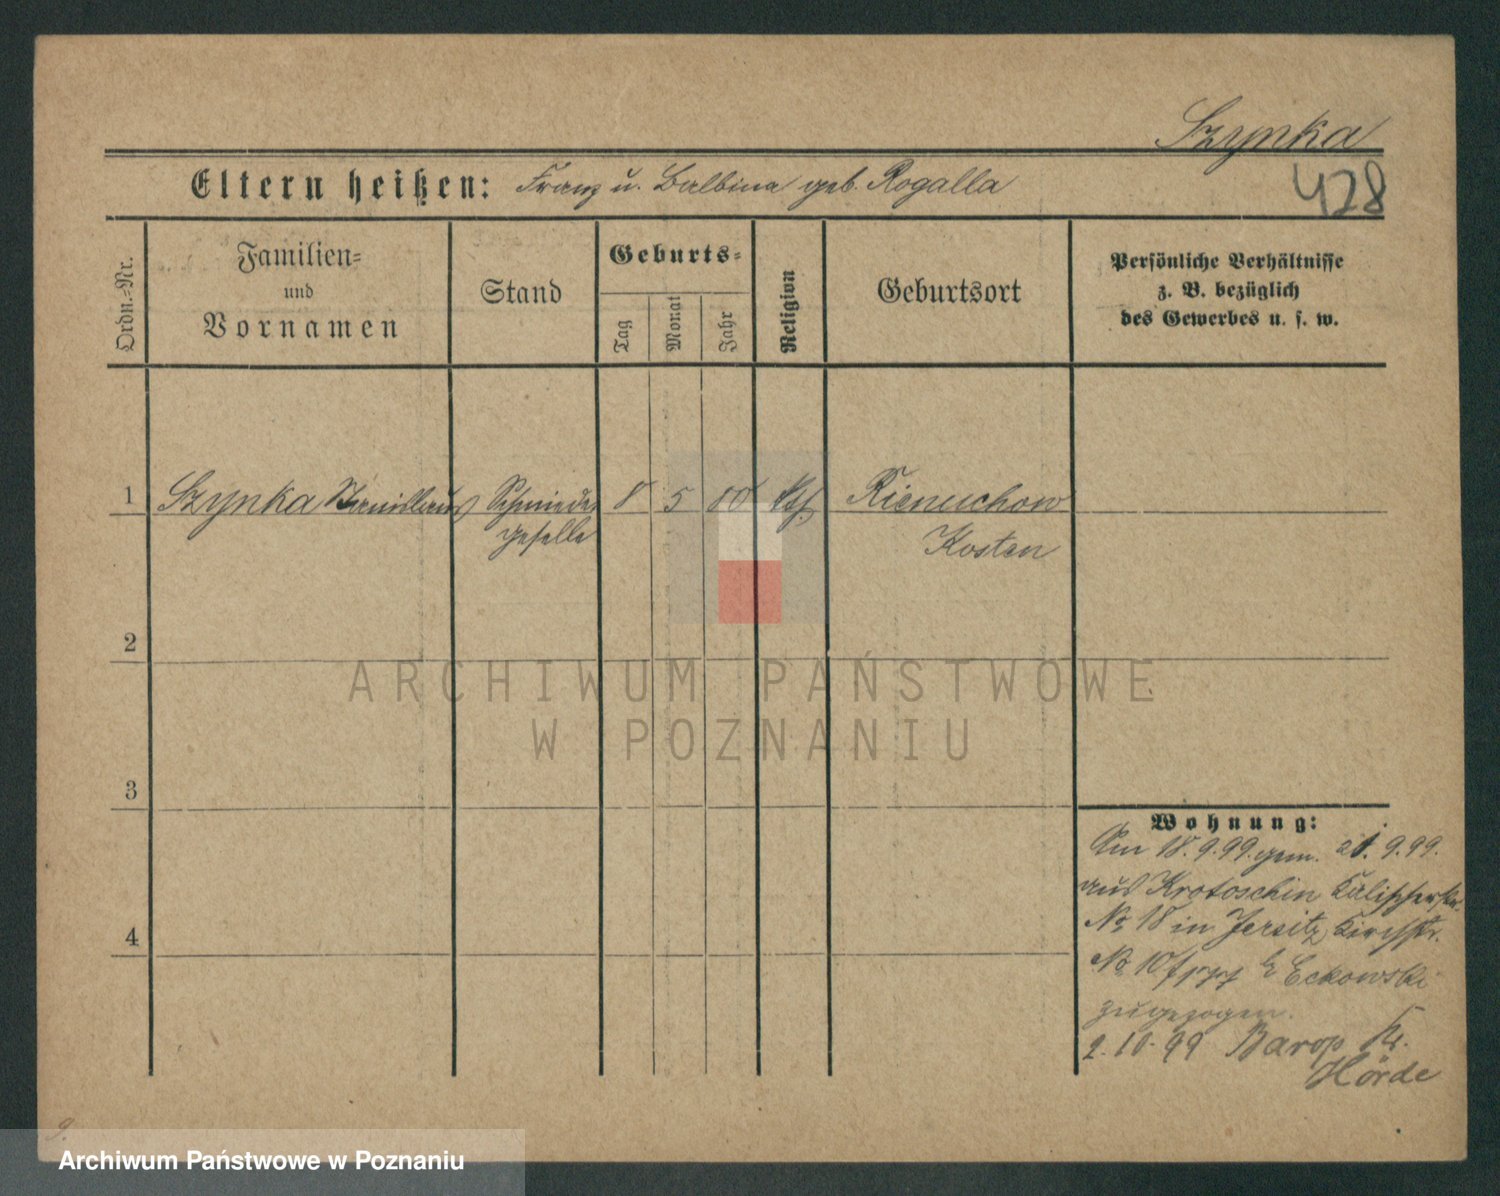 Szynka
428
Eltern heißen: Franz u. Balbina geb. Rogalla
Ordn.-Nr.
Familien-
und
Vornamen
Stand
Geburts-
Tag
Monat
Jahr
Religion
Geburtsort
Persönliche Verhältnisse
z. B. bezüglich
des Gewerbes u. s. w.
1 Szynka Stanislaus Schmiede 8 5 80 kth. Rienuchow
geselle Kosten
2
3
4
Wohnung:
Am 18.9.99. gem. 21.9.99.
aus Krotoschin Kalischerstr.
No 18 in Jersitz Kirchstr.
No 10 Eckowski
zugezogen.
2.10.99 Barop Kr.
Hörde
9.
ARCHIWUM PAŃSTWOWE
W POZNANIU
Archiwum Państwowe w Poznaniu